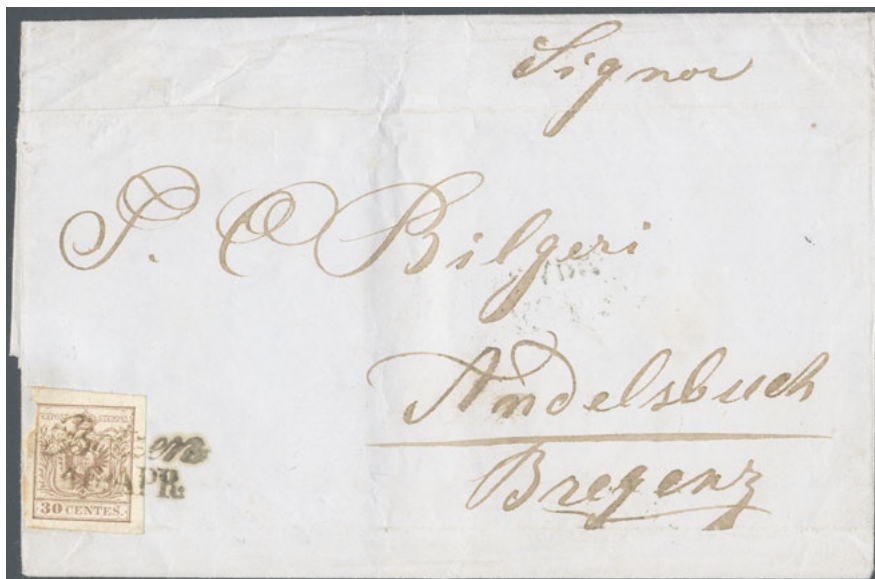 Signor
P. Bilgeri
Andelsbuch
Bregenz
APR.
30 CENTES.